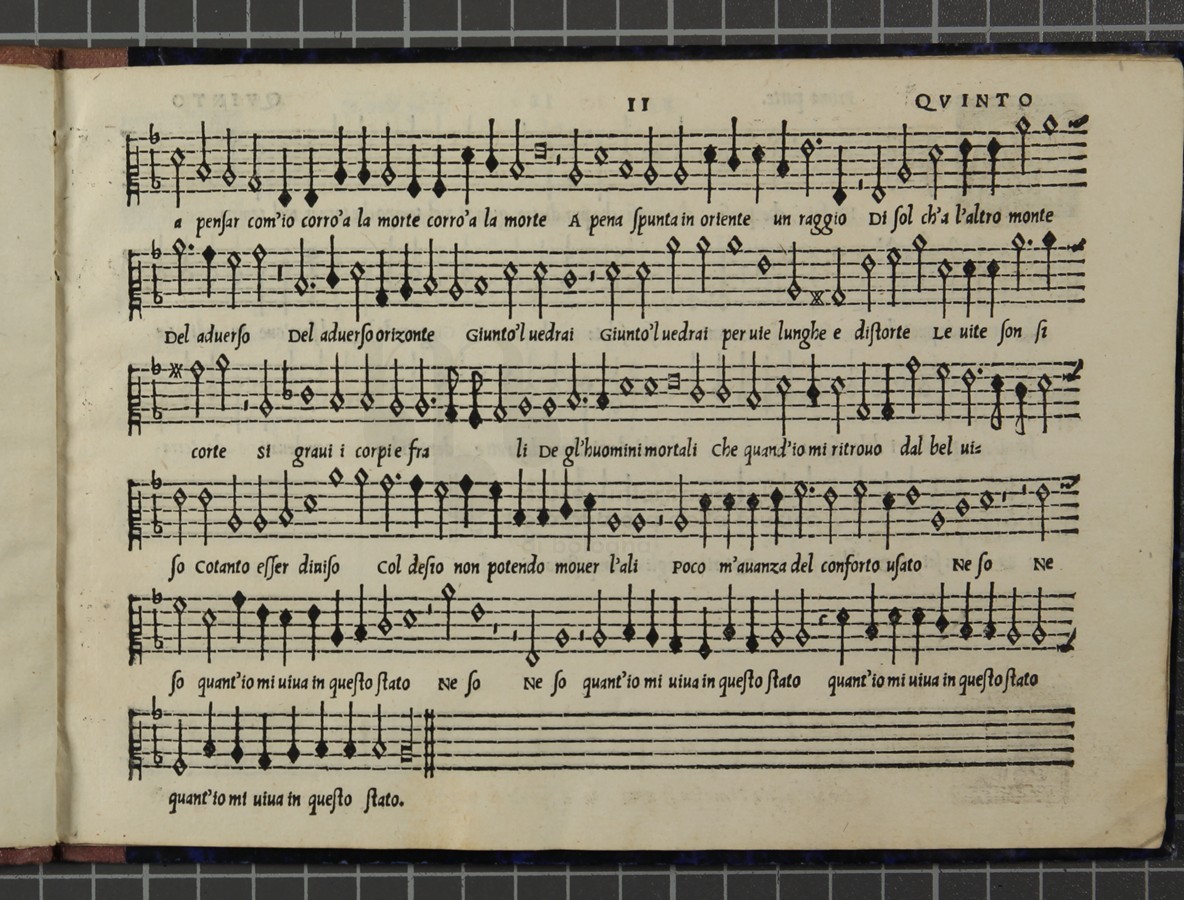 II QVINTO
a penſar com'io corro'a la morte corro'a la morte A pena ſpunta in oriente un raggio Di ſol ch'a l'altro monte
Del aduerſo Del aduerſo orizonte Giunto'l uedrai Giunto'l uedrai per uie lunghe e diſtorte Le uite ſon ſi
corte si graui i corpi e fra li De gl'huomini mortali Che quand'io mi ritrouo dal bel uiſ=
ſo Cotanto eſſer diuiſo Col deſio non potendo mouer l'ali Poco m'auanza del conforto uſato Ne ſo Ne
ſo quant'io mi uiua in queſto ſtato Ne ſo Ne ſo quant'io mi uiua in queſto ſtato quant'io mi uiua in queſto ſtato
quant'io mi uiua in queſto ſtato.